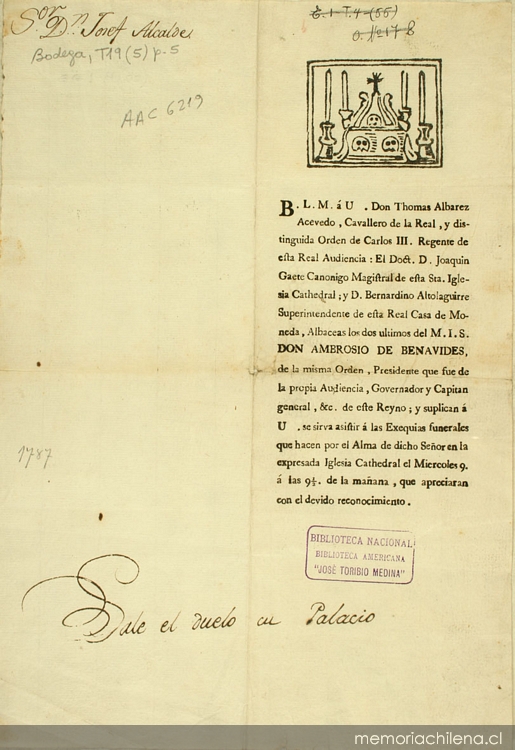 Sor. Dn. Josef Alcalde
Bodega, T19 (5) p. 5
AAC 6219
E. 1 - T. 4 - (55)
O. No 17 8
B. L. M. á U . Don Thomas Albarez
Acevedo , Cavallero de la Real , y dis-
tinguida Orden de Carlos III. Regente de
eſta Real Audiencia : El Doct. D. Joaquin
Gaete Canonigo Magiſtral de eſta Sta. Igle-
sia Cathedral ; y D. Bernardino Altolaguirre
Superintendente de eſta Real Casa de Mo-
neda , Albaceas los dos ultimos del M. I. S.
DON AMBROSIO DE BENAVIDES,
de la misma Orden , Presidente que fue de
la propia Audiencia , Governador y Capitan
general , &c. de eſte Reyno ; y suplican á
U . se sirva asiſtir á las Exequias funerales
que hacen por el Alma de dicho Señor en la
expresada Iglesia Cathedral el Miercoles 9.
á las 9½. de la mañana , que apreciaran
con el devido reconocimiento .
1787
BIBLIOTECA NACIONAL
BIBLIOTECA AMERICANA
"JOSÉ TORIBIO MEDINA"
Sale el duelo en Palacio
memoriachilena.cl